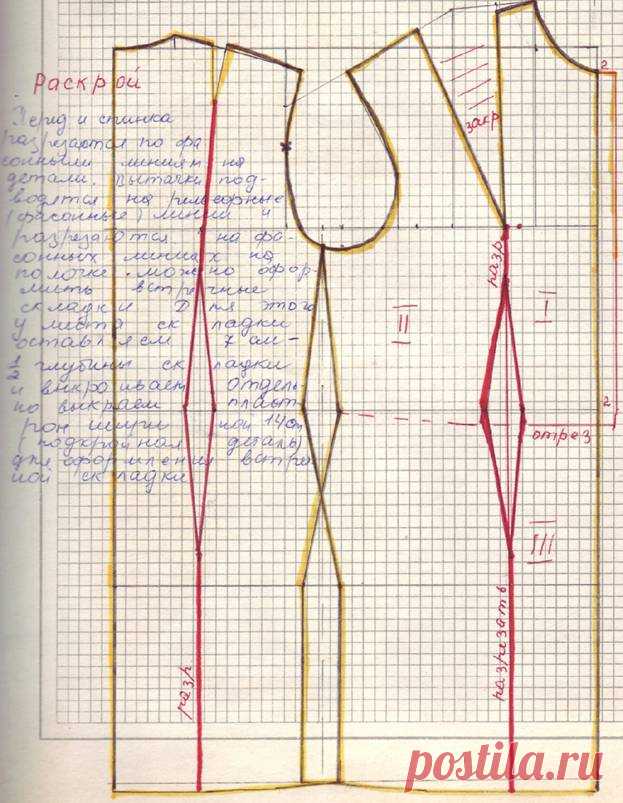 Раскрой
Перед и спинка
разрезаются по фа
сонными линиям на
детали. Вытачки под-
водятся на рельефные
(фасонные) линии и
разрезаются на фа-
сонных линиях на
полочке можно офор-
мить встречные
складки Для этого
у места складки
оставляем 7 см -
1/2 глубины складки
и выкраиваем отдель
но выкраем пласт
рон шириной 14см
(подкройная деталь)
для оформления встре
ной складки
закр
разр
I
II
III
отрез
2
2
разр
разрезать
postila.ru